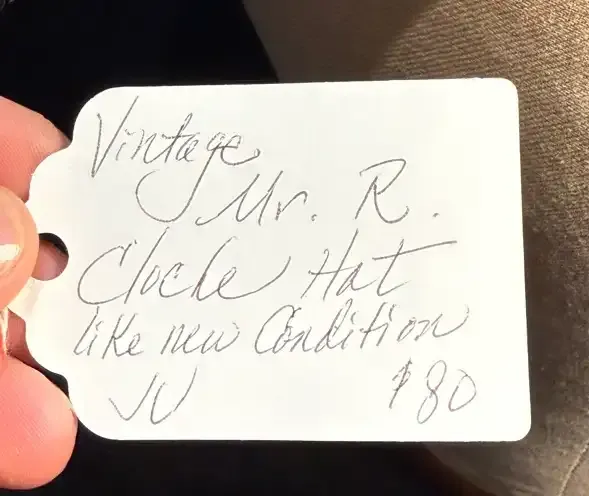 Vintage
Mr. R.
Cloche Hat
like new Condition
VV $80